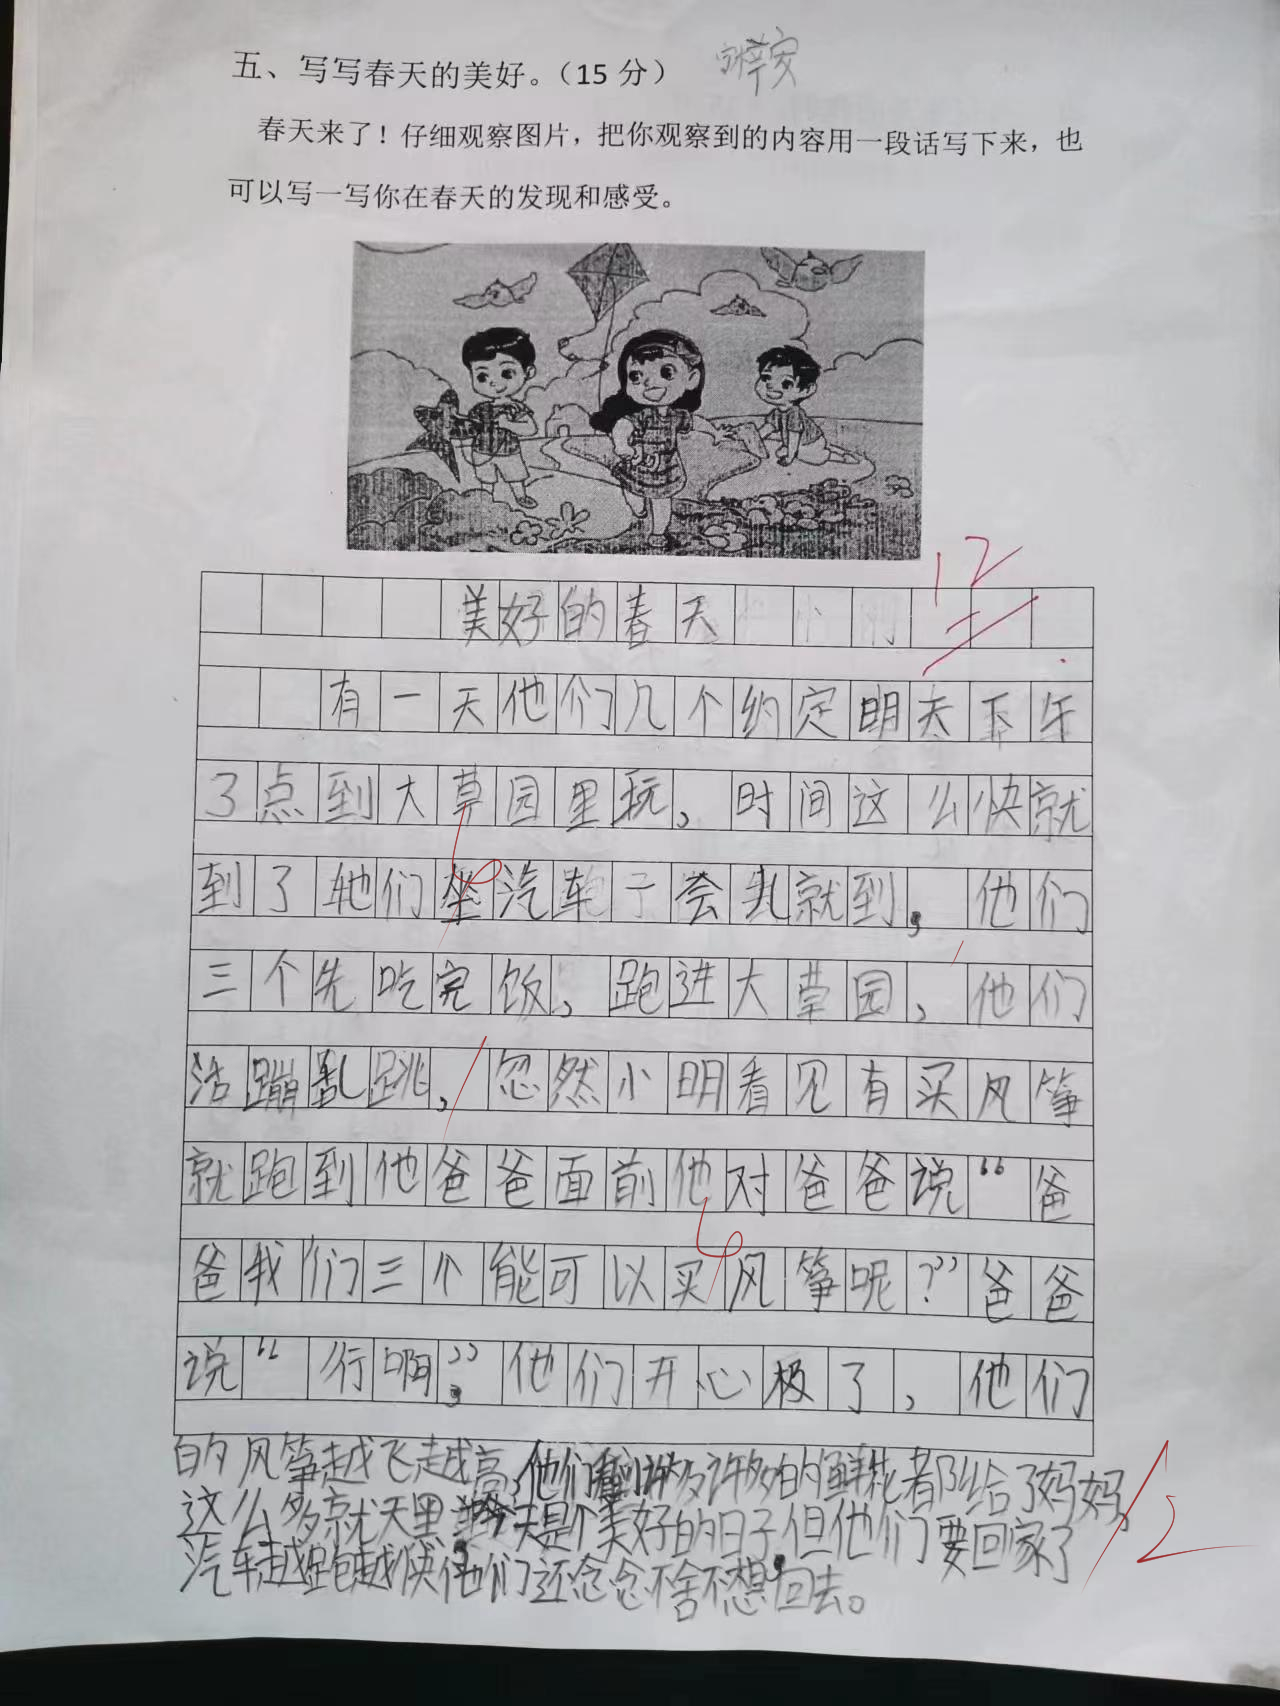 五、写写春天的美好。（15 分）
春天来了！仔细观察图片，把你观察到的内容用一段话写下来，也
可以写一写你在春天的发现和感受。
12
美好的春天
有一天他们几个约定明天下午
3点到大草园里玩，时间这么快就
到了他们坐汽车子会儿就到，他们
三个先吃完饭，跑进大草园，他们
活蹦乱跳，忽然小明看见有买风筝
就跑到他爸爸面前他对爸爸说“爸
爸我们三个能可以买风筝呢？”爸爸
说“行啊”，他们开心极了，他们
的风筝越飞越高，他们许多许多的鲜花都给了妈妈，
这么多就天里今天是个美好的日子，但他们要回家了
汽车越跑越快，他们还念念不舍不想回去。